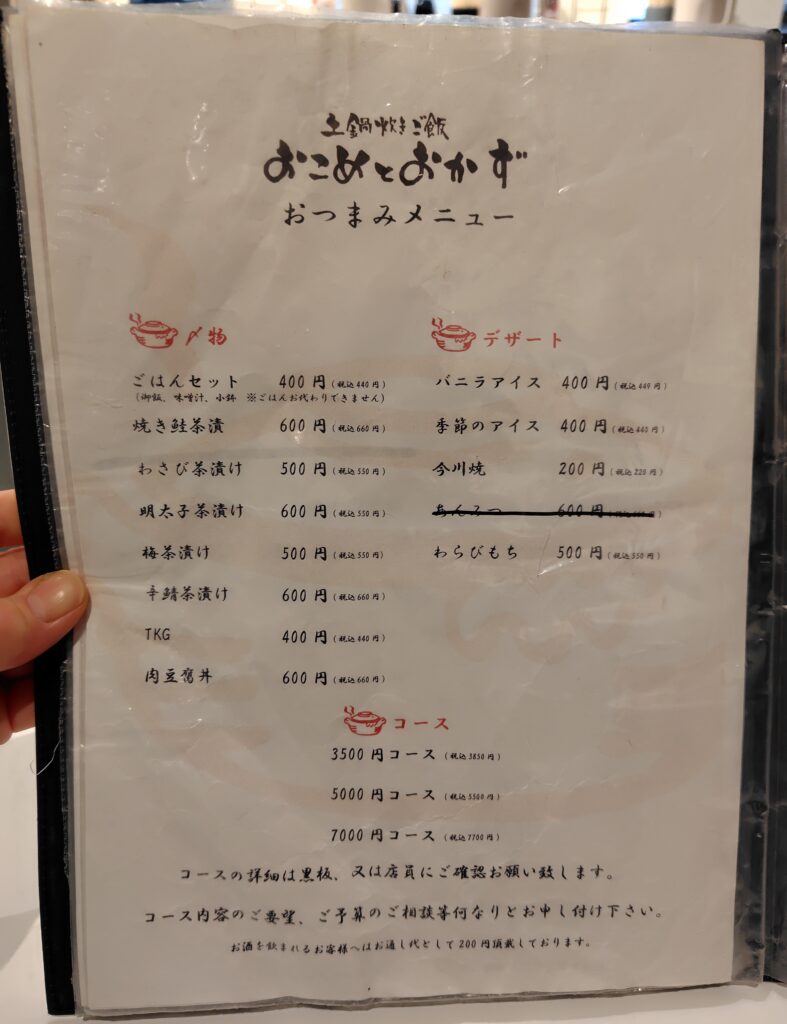 土鍋炊きご飯
おこめとおかず
おつまみメニュー
〆物
ごはんセット 400円(税込440円)
(御飯、味噌汁、小鉢 ※ごはんお代わりできません)
焼き鮭茶漬 600円(税込660円)
わさび茶漬け 500円(税込550円)
明太子茶漬け 600円(税込550円)
梅茶漬け 500円(税込550円)
辛鯖茶漬け 600円(税込660円)
TKG 400円(税込440円)
肉豆腐丼 600円(税込660円)
デザート
バニラアイス 400円(税込449円)
季節のアイス 400円(税込440円)
今川焼 200円(税込220円)
あんみつ 600円
わらびもち 500円(税込550円)
コース
3500円コース(税込3850円)
5000円コース(税込5500円)
7000円コース(税込7700円)
コースの詳細は黒板、又は店員にご確認お願い致します。
コース内容のご要望、ご予算のご相談等何なりとお申し付け下さい。
お酒を飲まれるお客様へはお通し代として200円頂戴しております。